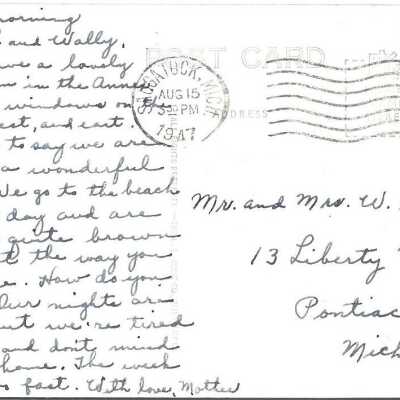 morning
and Wally,
ve a lovely
m in the Annex
windows on the
est, and east.
to say we are
a wonderful
We go to the beach
day and are
quite brown
t the way you
e. How do you
Our nights are
ut we're tired
and don't mind
home. The week
o fast. With love, Mother
POST CARD
SAUGATUCK, MICH.
AUG 15
5 30 PM
1947
ADDRESS
Mr. and Mrs. W.
13 Liberty
Pontiac
Mich